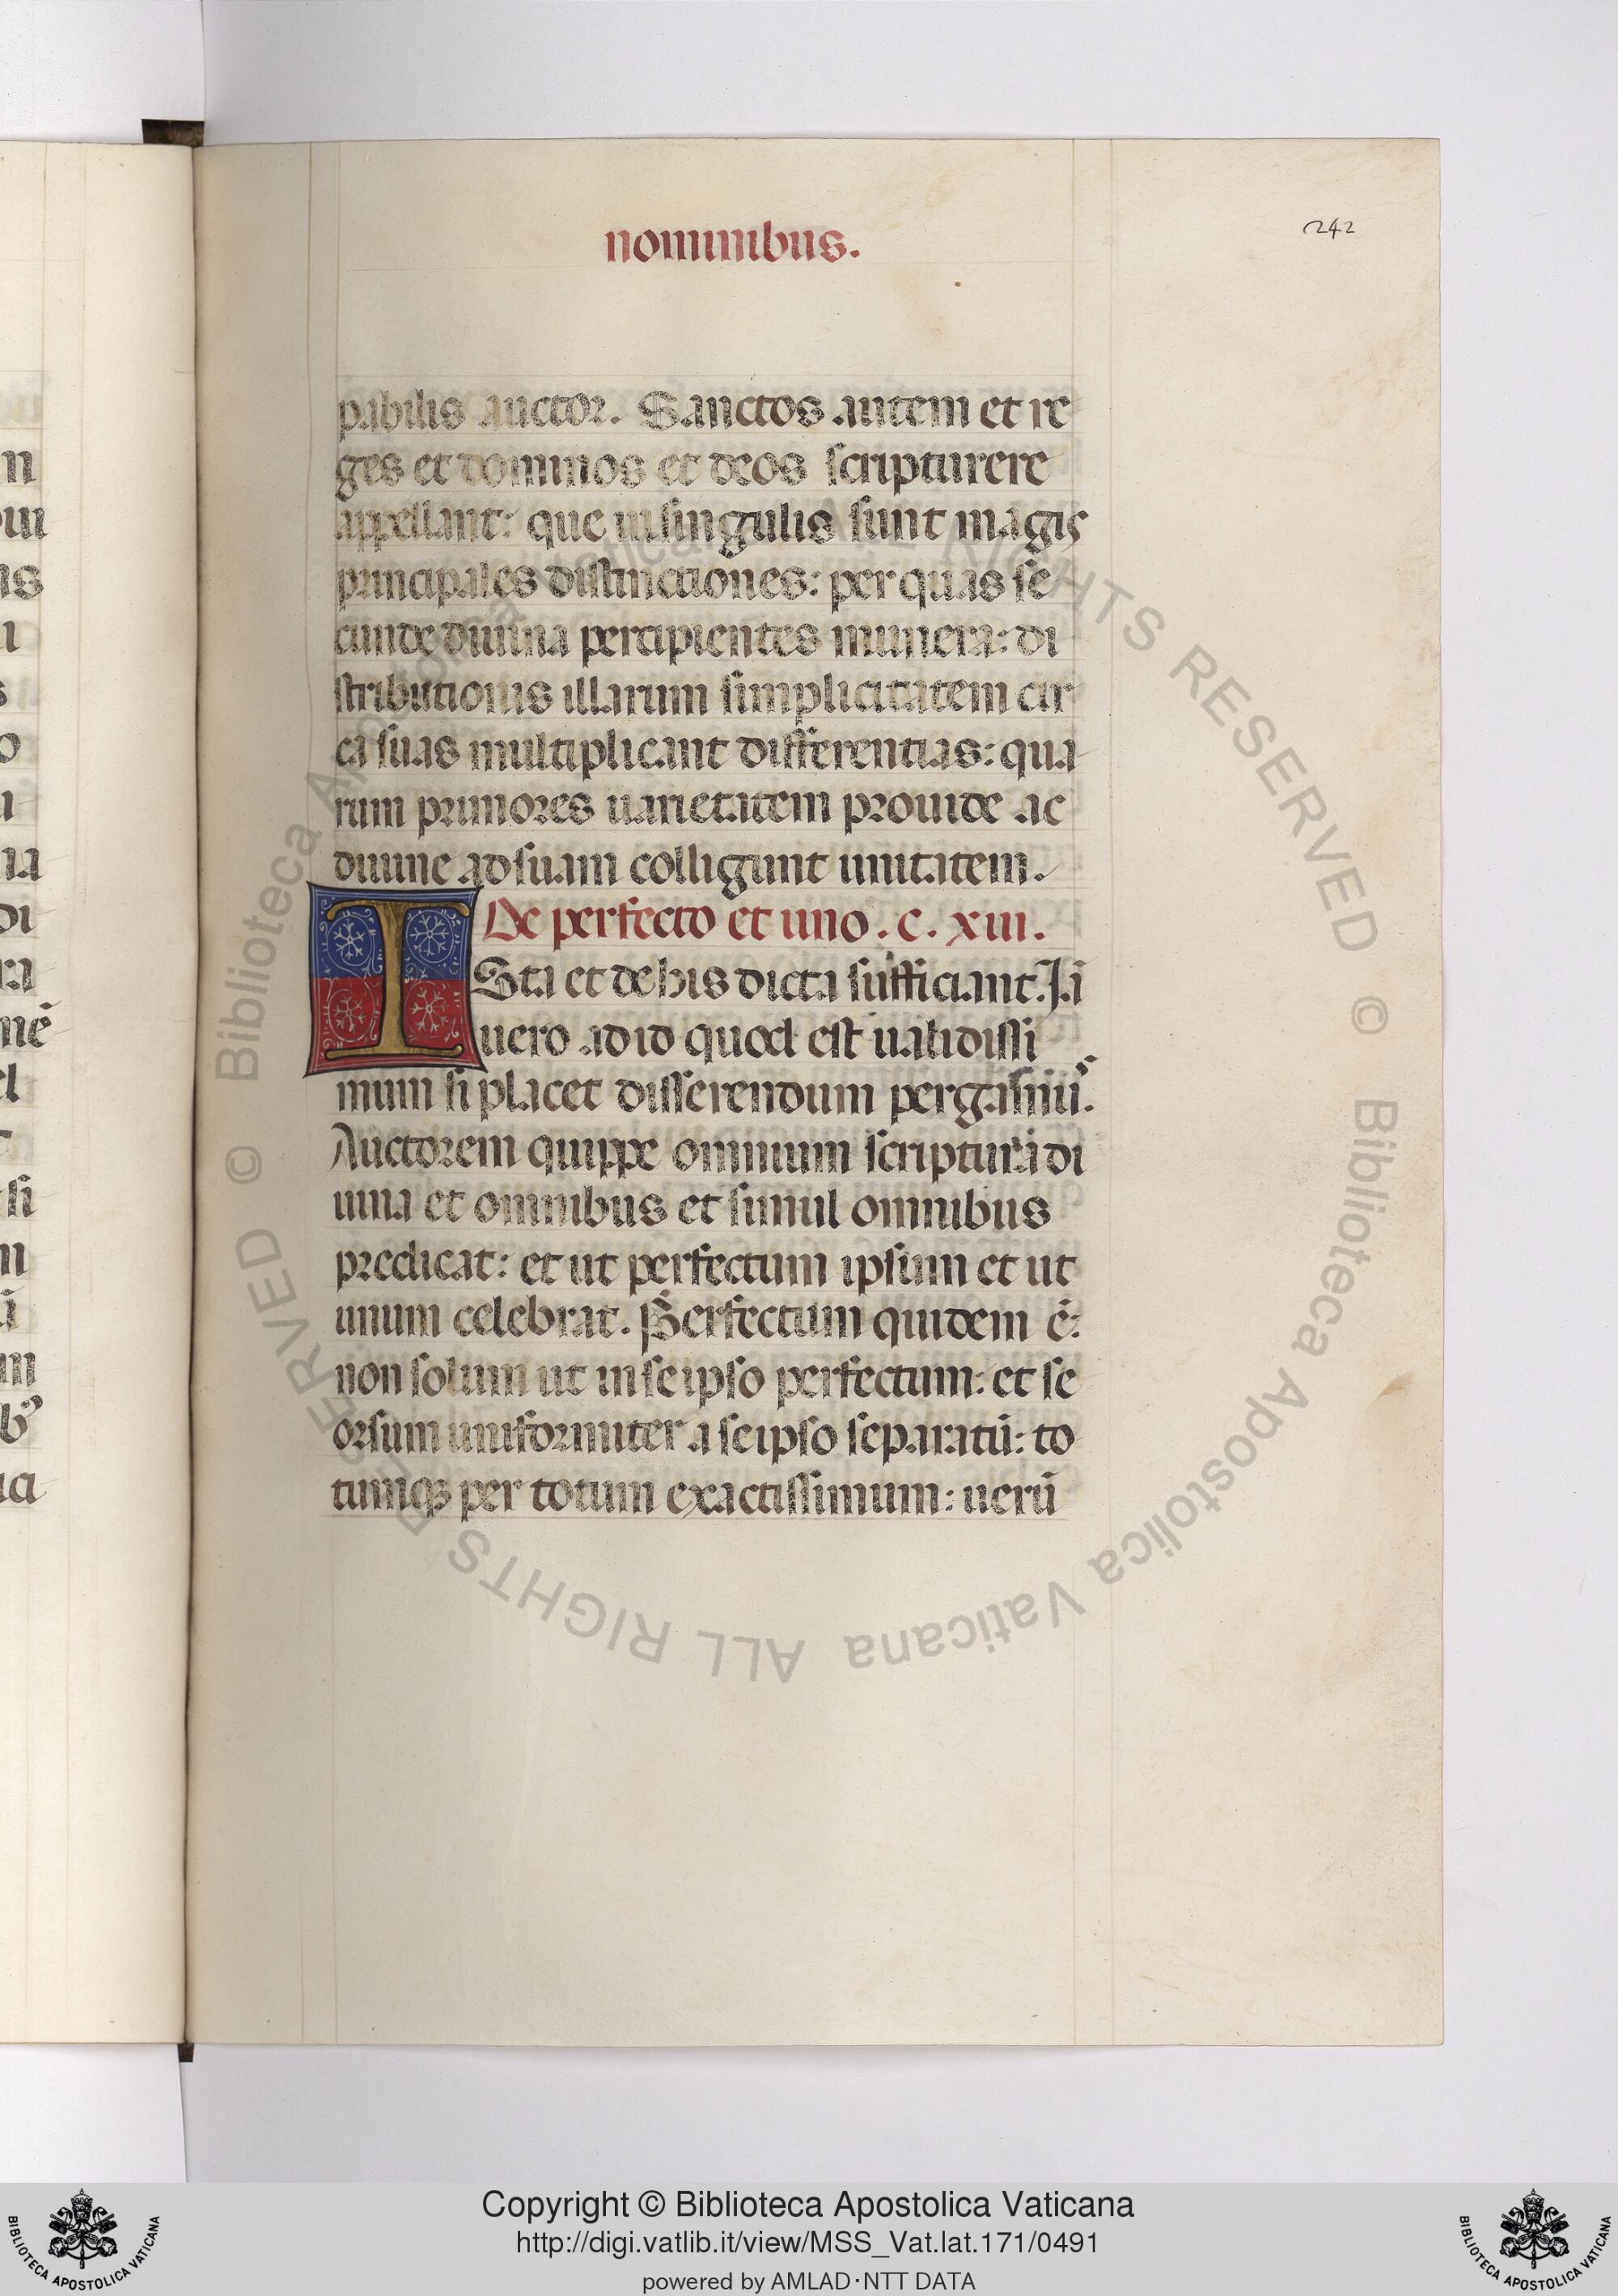 nominibus.
242
pabilis auctor. Sanctos autem et re
ges et dominos et deos scripturere
appellant: que in singulis sunt magis
principales distinctiones: per quas se
cunde diuina percipientes munera: di
stributionis illarum simplicitatem cir
ca suas multiplicant differentias: qua
rum primores uarietatem prouide ac
diuine ad suam colligunt unitatem.
De perfecto et uno. c. xiii.
ISta et de his dicta sufficiant. Iā
uero ad id quod est ualidissi
mum si placet disserendum pergasmuꝰ.
Auctorem quippe omnium scriptura di
uina et omnibus et simul omnibus
predicat: et ut perfectum ipsum et ut
unum celebrat. Perfectum quidem ē:
non solum ut in se ipso perfectum: et se
orsum uniformiter a se ipso separatū: to
tumqꝫ per totum exactissimum: uerū
© Biblioteca Apostolica Vaticana ALL RIGHTS RESERVED
© Biblioteca Apostolica Vaticana ALL RIGHTS RESERVED
Copyright © Biblioteca Apostolica Vaticana
http://digi.vatlib.it/view/MSS_Vat.lat.171/0491
powered by AMLAD·NTT DATA
BIBLIOTECA APOSTOLICA VATICANA
BIBLIOTECA APOSTOLICA VATICANA